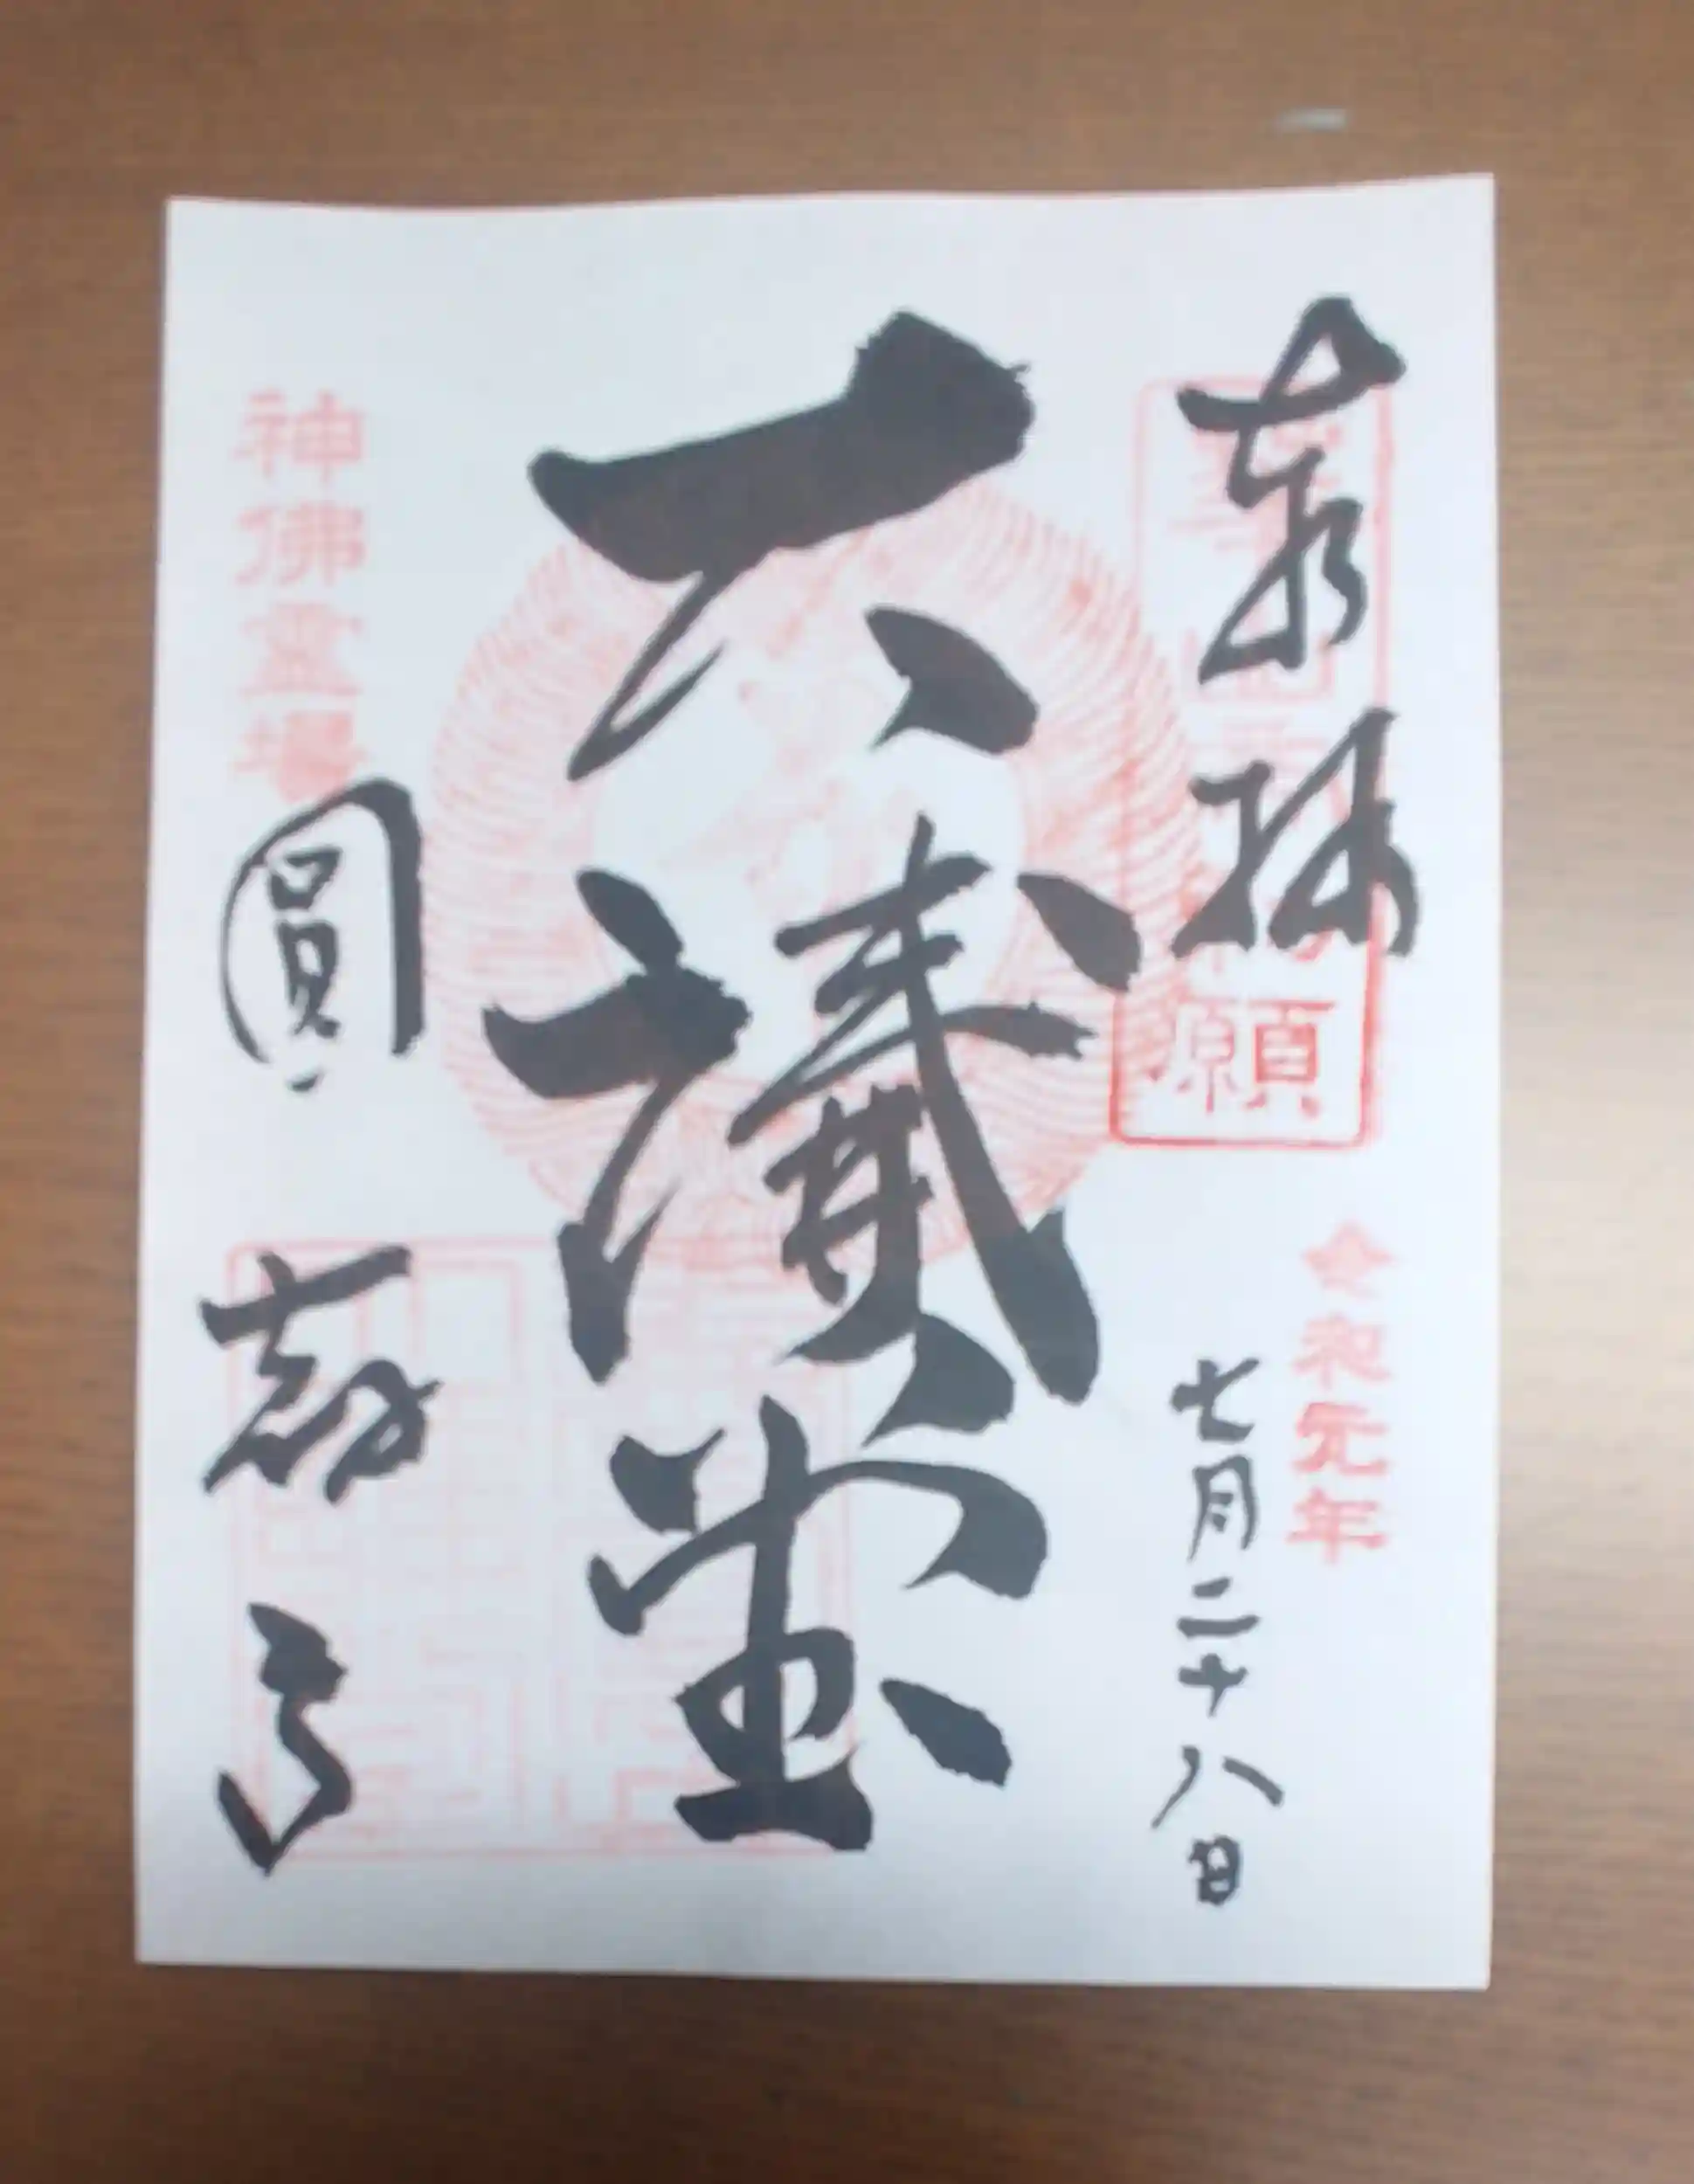 奉拝
令和元年
七月二十八日
大講堂
神佛霊場
圓教寺
願